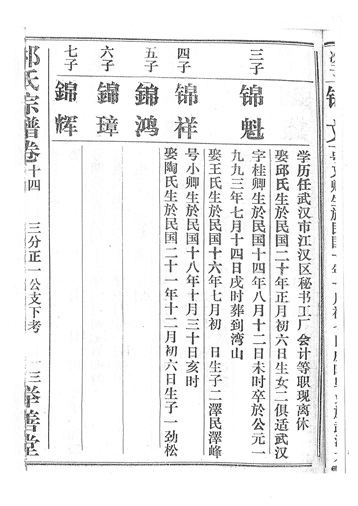 学历任武汉市江汉区秘书工厂会计等职现离休
娶邱氏生於民国二十年正月初六日生女二俱适武汉
三子
锦魁
字桂卿生於民国十四年八月十二日未时卒於公元一
九九三年七月十四日戌时葬到湾山
娶王氏生於民国十六年七月初 日生子二澤民澤峰
四子
锦祥
号小卿生於民国十八年十月三十日亥时
娶陶氏生於民国二十一年十二月初六日生子一劲松
五子
錦鸿
六子
錦璋
七子
錦辉
氏宗譜卷十四
三分正一公支下考
一三
善堂